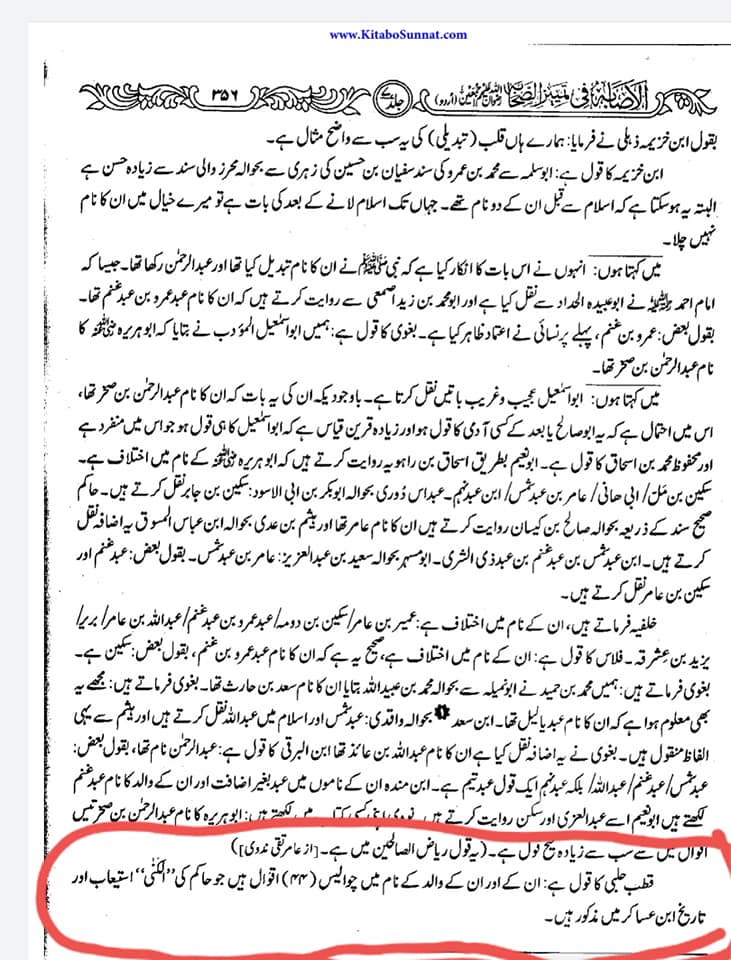 www.KitaboSunnat.com
الاصابة فی تمییز الصحابہ (اُردو) جلد ۷ ۳۵۶
بقول ابن خزیمہ ذہلی نے فرمایا: ہمارے ہاں قلب (تبدیلی) کی یہ سب سے واضح مثال ہے۔
ابن خزیمہ کا قول ہے: ابوسلمہ سے محمد بن عمرو کی سند سفیان بن حسین کی زہری سے بحوالہ محرز والی سند سے زیادہ حسن ہے
البتہ یہ ہوسکتا ہے کہ اسلام سے قبل ان کے دو نام تھے۔ جہاں تک اسلام لانے کے بعد کی بات ہے تو میرے خیال میں ان کا نام
نہیں چلا۔
میں کہتا ہوں: انہوں نے اس بات کا انکار کیا ہے کہ نبی ﷺ نے ان کا نام تبدیل کیا تھا اور عبدالرحمٰن رکھا تھا۔ جیسا کہ
امام احمد رحمہ اللہ نے ابوعبیدہ الحداد سے نقل کیا ہے اور ابومحمد بن زید اصمعی سے روایت کرتے ہیں کہ ان کا نام عبدعمرو بن عبدغنم تھا۔
بقول بعض: عمرو بن غنم، پہلے پر نسائی نے اعتماد ظاہر کیا ہے۔ بغوی کا قول ہے: ہمیں ابواسمٰعیل المؤدب نے بتایا کہ ابوہریرہ رضی اللہ عنہ کا
نام عبدالرحمٰن بن صخر تھا۔
میں کہتا ہوں: ابواسمٰعیل عجیب و غریب باتیں نقل کرتا ہے۔ باوجودیکہ ان کی یہ بات کہ ان کا نام عبدالرحمٰن بن صخر تھا،
اس میں احتمال ہے کہ یہ ابوصالح یا بعد کے کسی آدمی کا قول ہو اور زیادہ قرین قیاس ہے کہ ابواسمٰعیل کا ہی قول ہو جو اس میں منفرد ہے
اور محفوظ محمد بن اسحاق کا قول ہے۔ ابونعیم بطریق اسحاق بن راہویہ روایت کرتے ہیں کہ ابوہریرہ رضی اللہ عنہ کے نام میں اختلاف ہے۔
سکین بن مَل/ ابی ھانی/ عامر بن عبدشمس/ ابن عبدنہم۔ عباس دُوری بحوالہ ابوبکر بن ابی الاسود: سکین بن جابر نقل کرتے ہیں۔ حاکم
صحیح سند کے ذریعہ بحوالہ صالح بن کیسان روایت کرتے ہیں ان کا نام عامر تھا اور ہیثم بن عدی بحوالہ ابن عباس المسوق یہ اضافہ نقل
کرتے ہیں۔ ابن عبدشمس بن عبدغنم بن عبدذی الشری۔ ابومسہر بحوالہ سعید بن عبدالعزیز: عامر بن عبدشمس۔ بقول بعض: عبدغنم اور
سکین بن عامر نقل کرتے ہیں۔
خلیفہ فرماتے ہیں، ان کے نام میں اختلاف ہے: عمیر بن عامر/ سکین بن دومہ/ عبدعمرو بن عبدغنم/ عبداللہ بن عامر/ بریر/
یزید بن عشرقہ۔ فلاس کا قول ہے: ان کے نام میں اختلاف ہے، صحیح یہ ہے کہ ان کا نام عبدعمرو بن غنم، بقول بعض: سکین ہے۔
بغوی فرماتے ہیں: ہمیں محمد بن حمید نے ابونمیلہ سے بحوالہ محمد بن عبیداللہ بتایا ان کا نام سعد بن حارث تھا۔ بغوی فرماتے ہیں: مجھے یہ
بھی معلوم ہوا ہے کہ ان کا نام عبدیالیل تھا۔ ابن سعد بحوالہ واقدی: عبدشمس اور اسلام میں عبداللہ نقل کرتے ہیں اور ہیثم سے یہی
الفاظ منقول ہیں۔ بغوی نے یہ اضافہ نقل کیا ہے ان کا نام عبداللہ بن عائذ تھا ابن البرقی کا قول ہے: عبدالرحمٰن نام تھا، بقول بعض:
عبدشمس/ عبدغنم/ عبداللہ/ بلکہ عبدنہم ایک قول عبدتیم ہے۔ ابن مندہ ان کے ناموں میں عبد بغیر اضافت اور ان کے والد کا نام عبدغنم
لکھتے ہیں ابونعیم اسے عبدالعزی اور سکن روایت کرتے ہیں۔ نووی اپنی کسی کتاب میں لکھتے ہیں: ابوہریرہ کا نام عبدالرحمٰن بن صخر تیس
اقوال میں سے سب سے زیادہ صحیح قول ہے۔ (یہ قول ریاض الصالحین میں ہے۔ [از عامر تقی ندوی])
قطب حلبی کا قول ہے: ان کے اور ان کے والد کے نام میں چوالیس (۴۴) اقوال ہیں جو حاکم کی ”الکنٰی“ استیعاب اور
تاریخ ابن عساکر میں مذکور ہیں۔